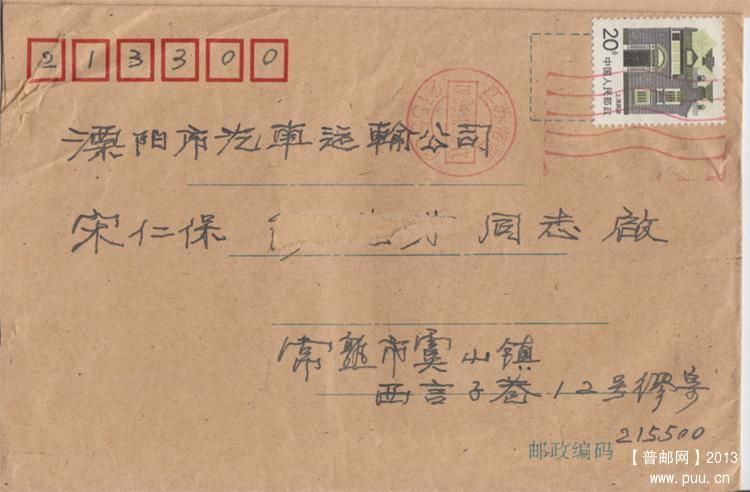 213300
20分
中国人民邮政
上海民居
溧阳市汽車运輸公司
宋仁保 同志 啟
常熟市虞山镇
西言子巷12号缪寄
邮政编码 215500
【普邮网】2013
www.puu.cn